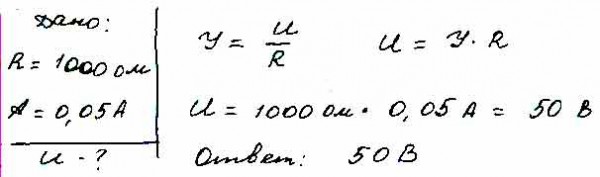 Дано:
R = 1000 ом
A = 0,05 А
U - ?
У = U/R    U = У · R
U = 1000 ом · 0,05 А = 50 В
Ответ: 50 В